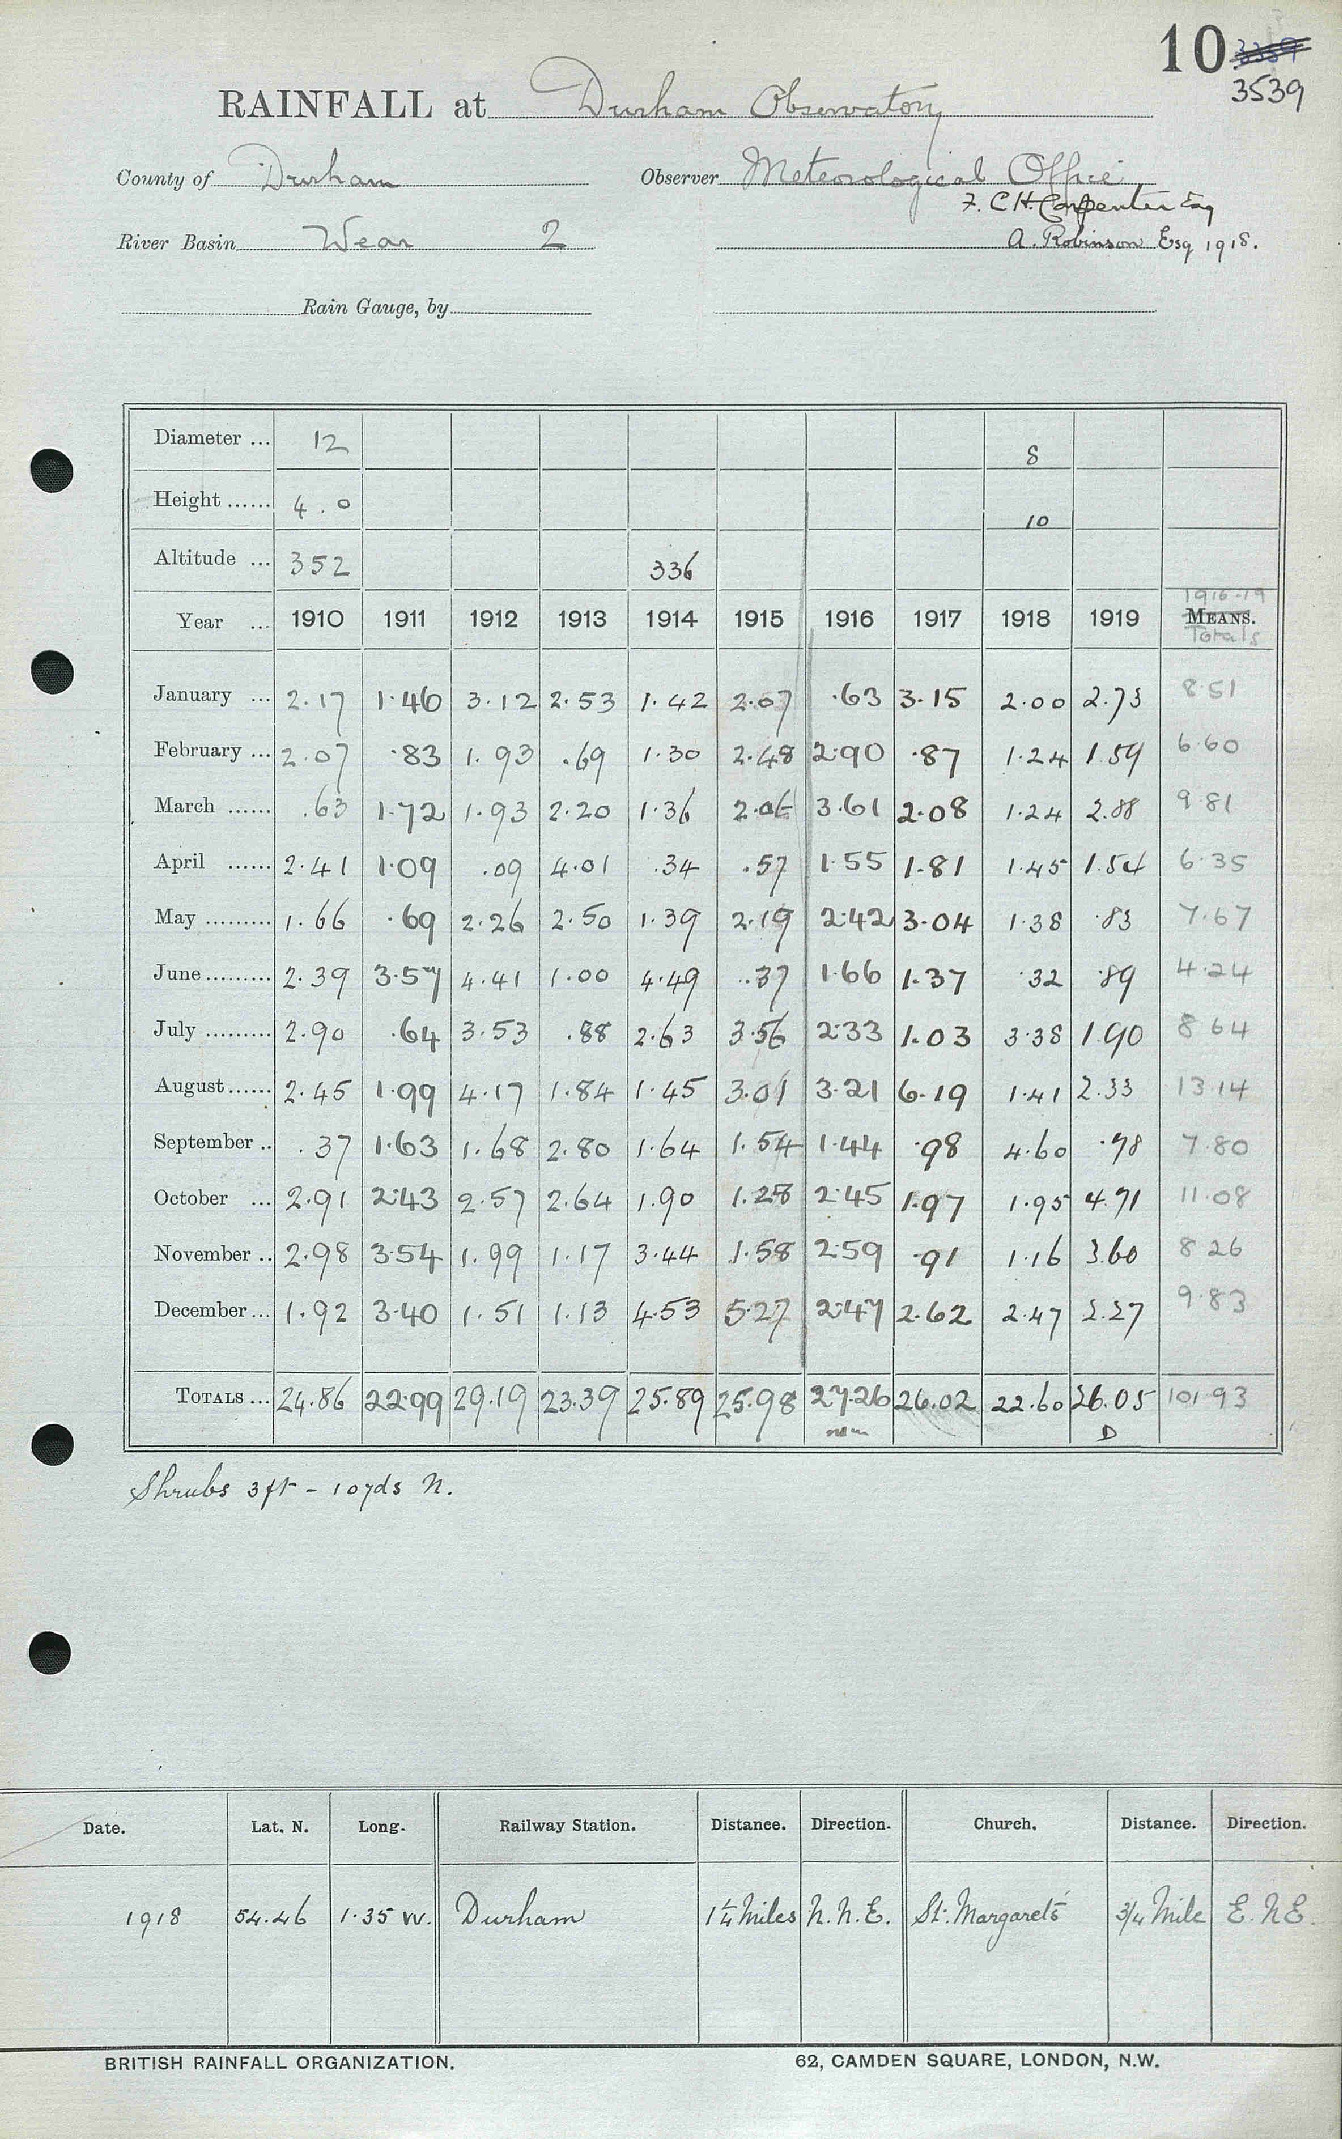 10 3539
RAINFALL at Durham Observatory
County of Durham Observer Meteorological Office
F. C H. Carpenter Esq
River Basin Wear 2 A. Robinson Esq 1918.
Rain Gauge, by
Diameter ... 12 8
Height ...... 4.0 10
Altitude ... 352 336
1916-19
Year ... 1910 1911 1912 1913 1914 1915 1916 1917 1918 1919 MEANS.
Totals
January ... 2.17 1.46 3.12 2.53 1.42 2.07 .63 3.15 2.00 2.73 8.51
February ... 2.07 .83 1.93 .69 1.30 2.48 2.90 .87 1.24 1.59 6.60
March ...... .63 1.72 1.93 2.20 1.36 2.06 3.61 2.08 1.24 2.88 9.81
April ...... 2.41 1.09 .09 4.01 .34 .57 1.55 1.81 1.45 1.54 6.35
May ......... 1.66 .69 2.26 2.50 1.39 2.19 2.42 3.04 1.38 .83 7.67
June ......... 2.39 3.57 4.41 1.00 4.49 .37 1.66 1.37 .32 .89 4.24
July ......... 2.90 .64 3.53 .88 2.63 3.56 2.33 1.03 3.38 1.90 8.64
August ...... 2.45 1.99 4.17 1.84 1.45 3.01 3.21 6.19 1.41 2.33 13.14
September .. .37 1.63 1.68 2.80 1.64 1.54 1.44 .98 4.60 .78 7.80
October ... 2.91 2.43 2.57 2.64 1.90 1.28 2.45 1.97 1.95 4.71 11.08
November .. 2.98 3.54 1.99 1.17 3.44 1.58 2.59 .91 1.16 3.60 8.26
December ... 1.92 3.40 1.51 1.13 4.53 5.27 2.47 2.62 2.47 2.27 9.83
TOTALS ... 24.86 22.99 29.19 23.39 25.89 25.98 27.26 26.02 22.60 26.05 101.93
D
Shrubs 3ft - 10yds N.
Date. Lat. N. Long. Railway Station. Distance. Direction. Church. Distance. Direction.
1918 54.46 1.35 W. Durham 1¼ Miles N.N.E. St. Margaret's 3/4 Mile E.N.E.
BRITISH RAINFALL ORGANIZATION. 62, CAMDEN SQUARE, LONDON, N.W.